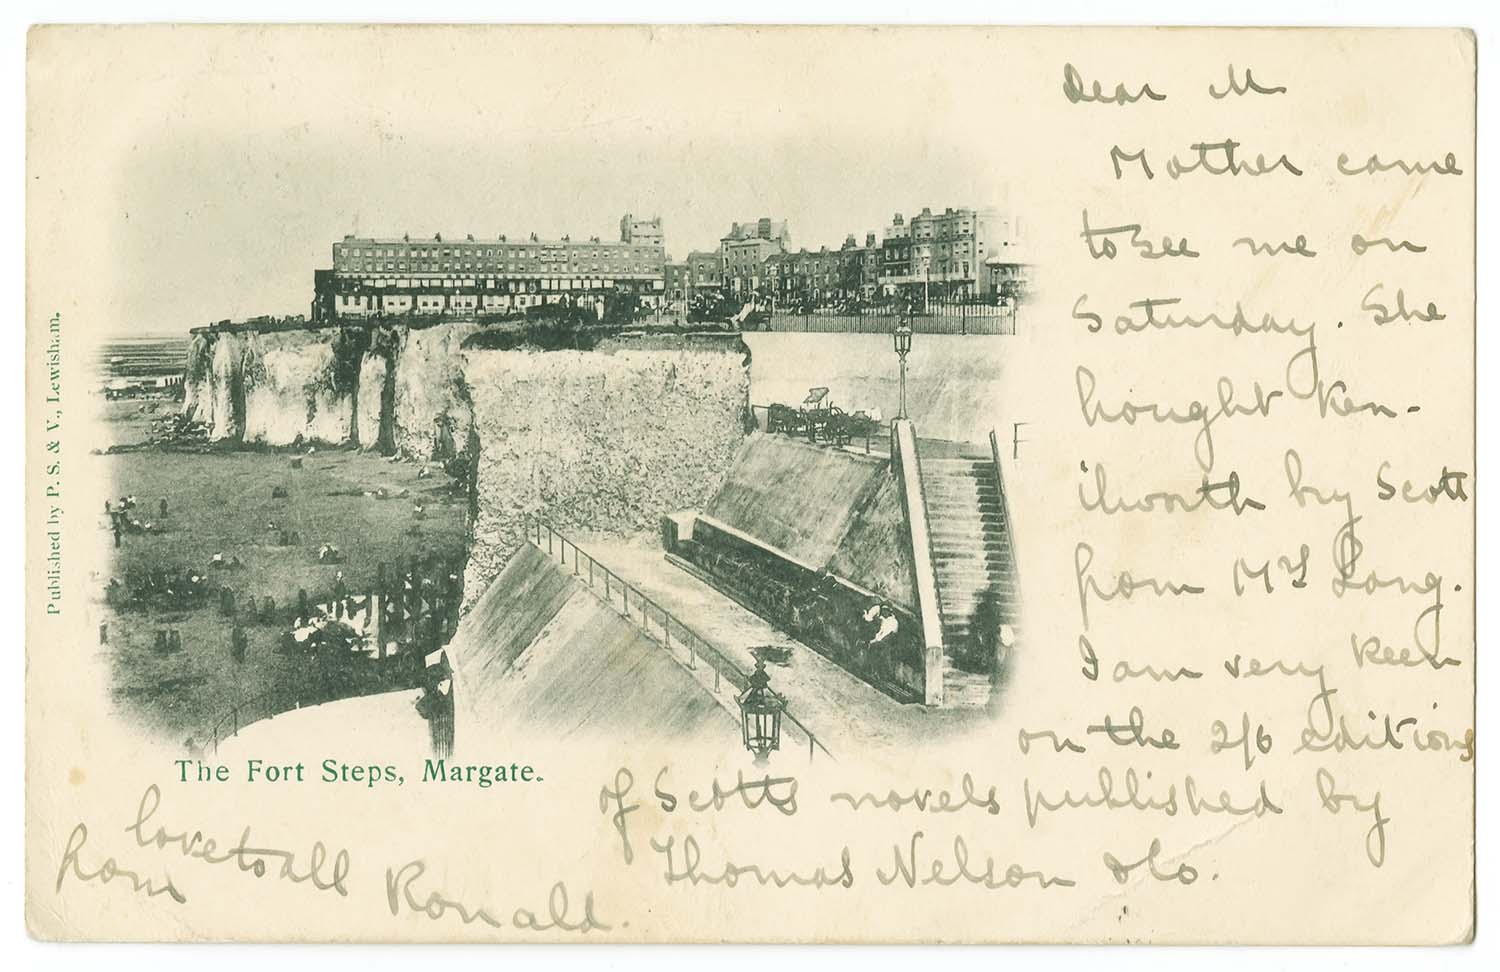 Dear M
Mother came
to see me on
Saturday. She
bought Ken-
ilworth by Scott
from Mrs Long.
I am very keen
on the 2/6 editions
of Scotts novels published by
Thomas Nelson & Co.
love to all
from Ronald.
The Fort Steps, Margate.
Published by P. S. & V., Lewisham.